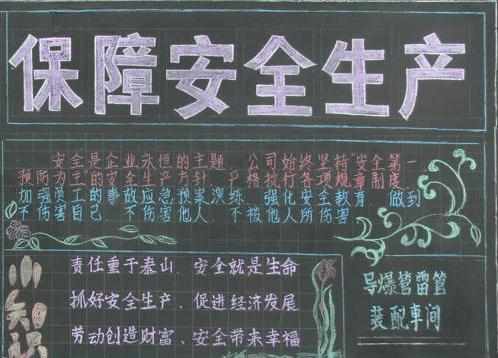 保障安全生产
安全是企业永恒的主题 公司始终坚持"安全第一
预防为主"的安全生产方针 严格执行各项规章制度
加强员工的事故应急预案演练 强化安全教育 做到
不伤害自己 不伤害他人 不被他人所伤害
小知识
责任重于泰山、安全就是生命
抓好安全生产、促进经济发展
劳动创造财富、安全带来幸福
导爆管雷管
装配车间